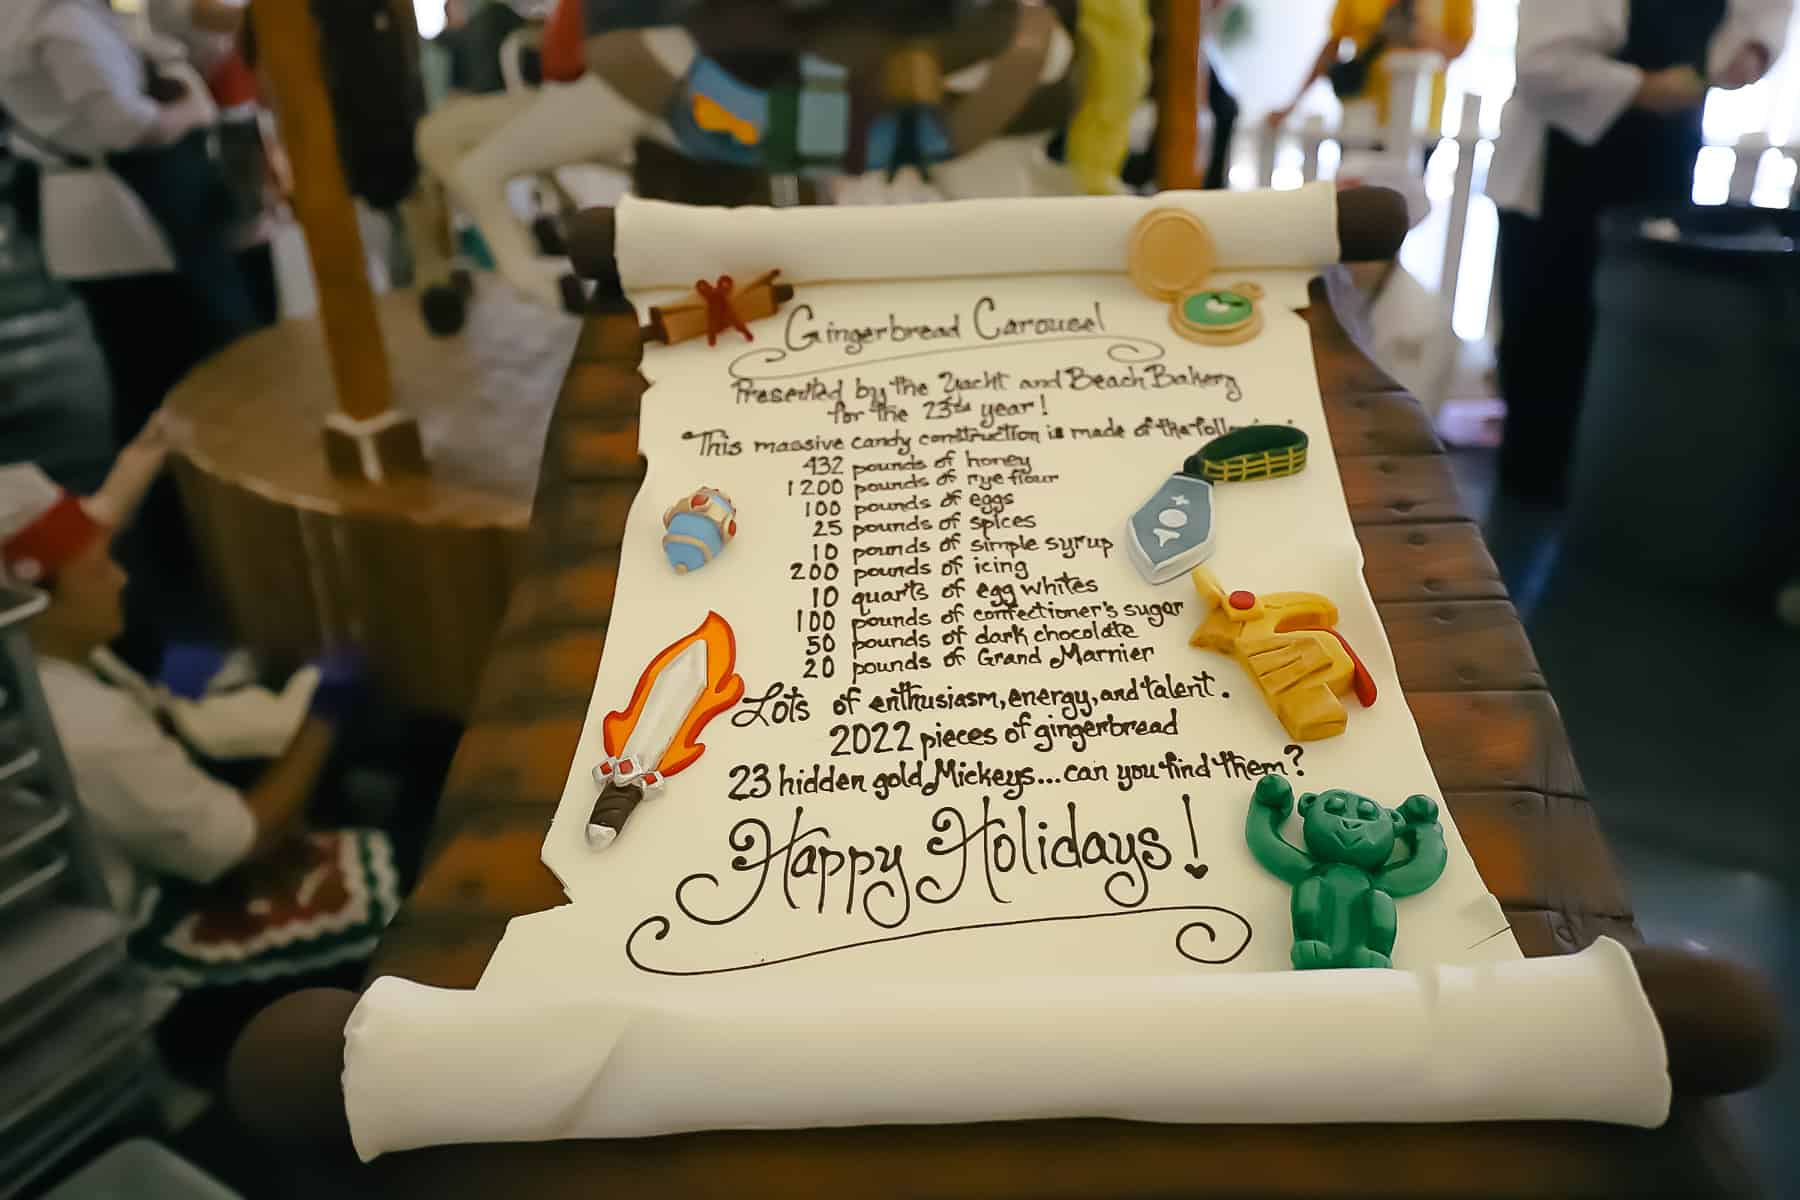 Gingerbread Carousel
Presented by the Yacht and Beach Bakery
for the 23rd year!
This massive candy construction is made of the
432 pounds of honey
1200 pounds of rye flour
100 pounds of eggs
25 pounds of spices
10 pounds of simple syrup
200 pounds of icing
10 quarts of egg whites
100 pounds of confectioner's sugar
50 pounds of dark chocolate
20 pounds of Grand Marnier
Lots of enthusiasm, energy, and talent.
2022 pieces of gingerbread
23 hidden gold Mickeys... can you find them?
Happy Holidays!